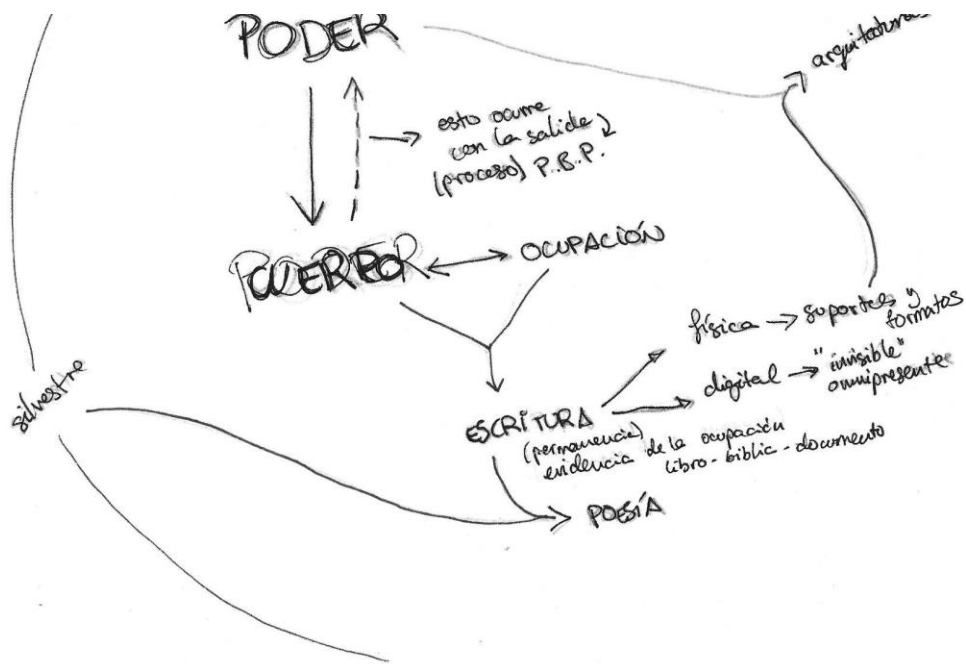 PODER
arquitecturas
esto ocurre
con la salida
(proceso) P.B.P.
OCUPACIÓN
física → soportes y
formatos
digital → "invisible"
omnipresente
silvestre
ESCRITURA
(permanencia)
evidencia de la ocupación
libro - biblio - documento
POESÍA